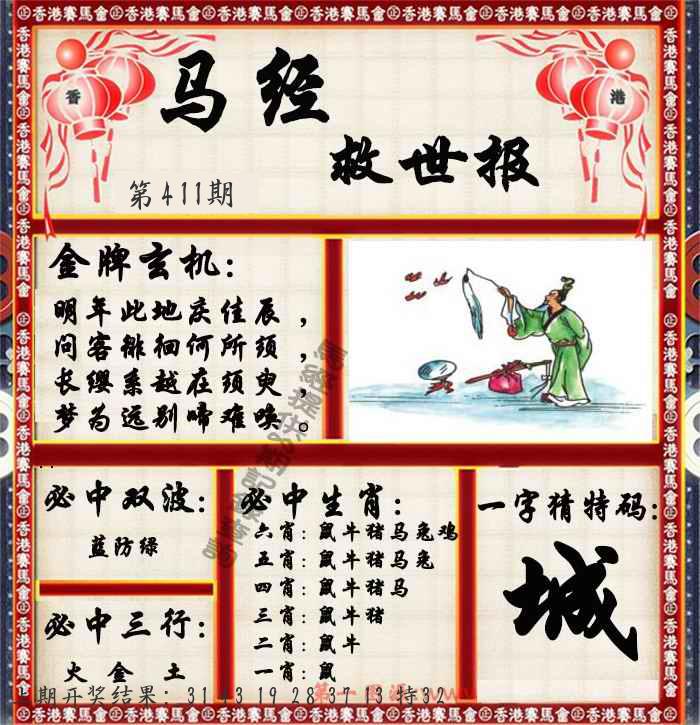 香港賽馬會
香
港
马经
救世报
第411期
金牌玄机：
明年此地庆佳辰，
问客徘徊何所须，
长缨系越在须臾，
梦为远别啼难唤。
必中双波：
蓝防绿
必中三行：
火 金 土
必中生肖：
六肖：鼠牛猪马兔鸡
五肖：鼠牛猪马兔
四肖：鼠牛猪马
三肖：鼠牛猪
二肖：鼠牛
一肖：鼠
一字猜特码：
城
期开奖结果：31 43 19 28 37 13 特32